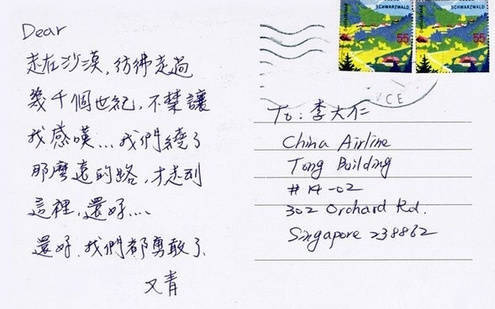 Dear
走在沙漠，彷彿走過
幾千個世紀，不禁讓
我感嘆...我們繞了
那麼遠的路，才走到
這裡，還好....
還好，我們都勇敢了.
又青
SCHWARZWALD
55
SCHWARZWALD
55
To: 李大仁
China Airline
Tong Building
#14-02
302 Orchard Rd.
Singapore 238862